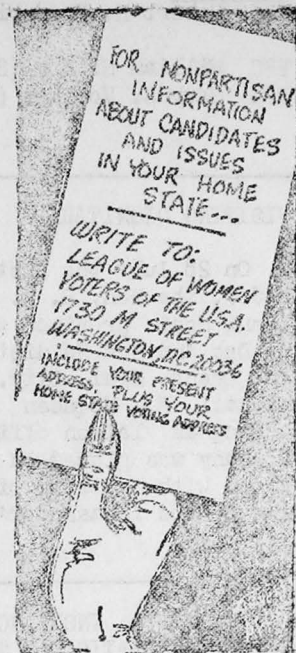 FOR NONPARTISAN
INFORMATION
ABOUT CANDIDATES
AND ISSUES
IN YOUR HOME
STATE...
WRITE TO:
LEAGUE OF WOMEN
VOTERS OF THE U.S.A.
1730 M STREET
WASHINGTON, DC 20036
INCLUDE YOUR PRESENT
ADDRESS, PLUS YOUR
HOME STATE VOTING ADDRESS